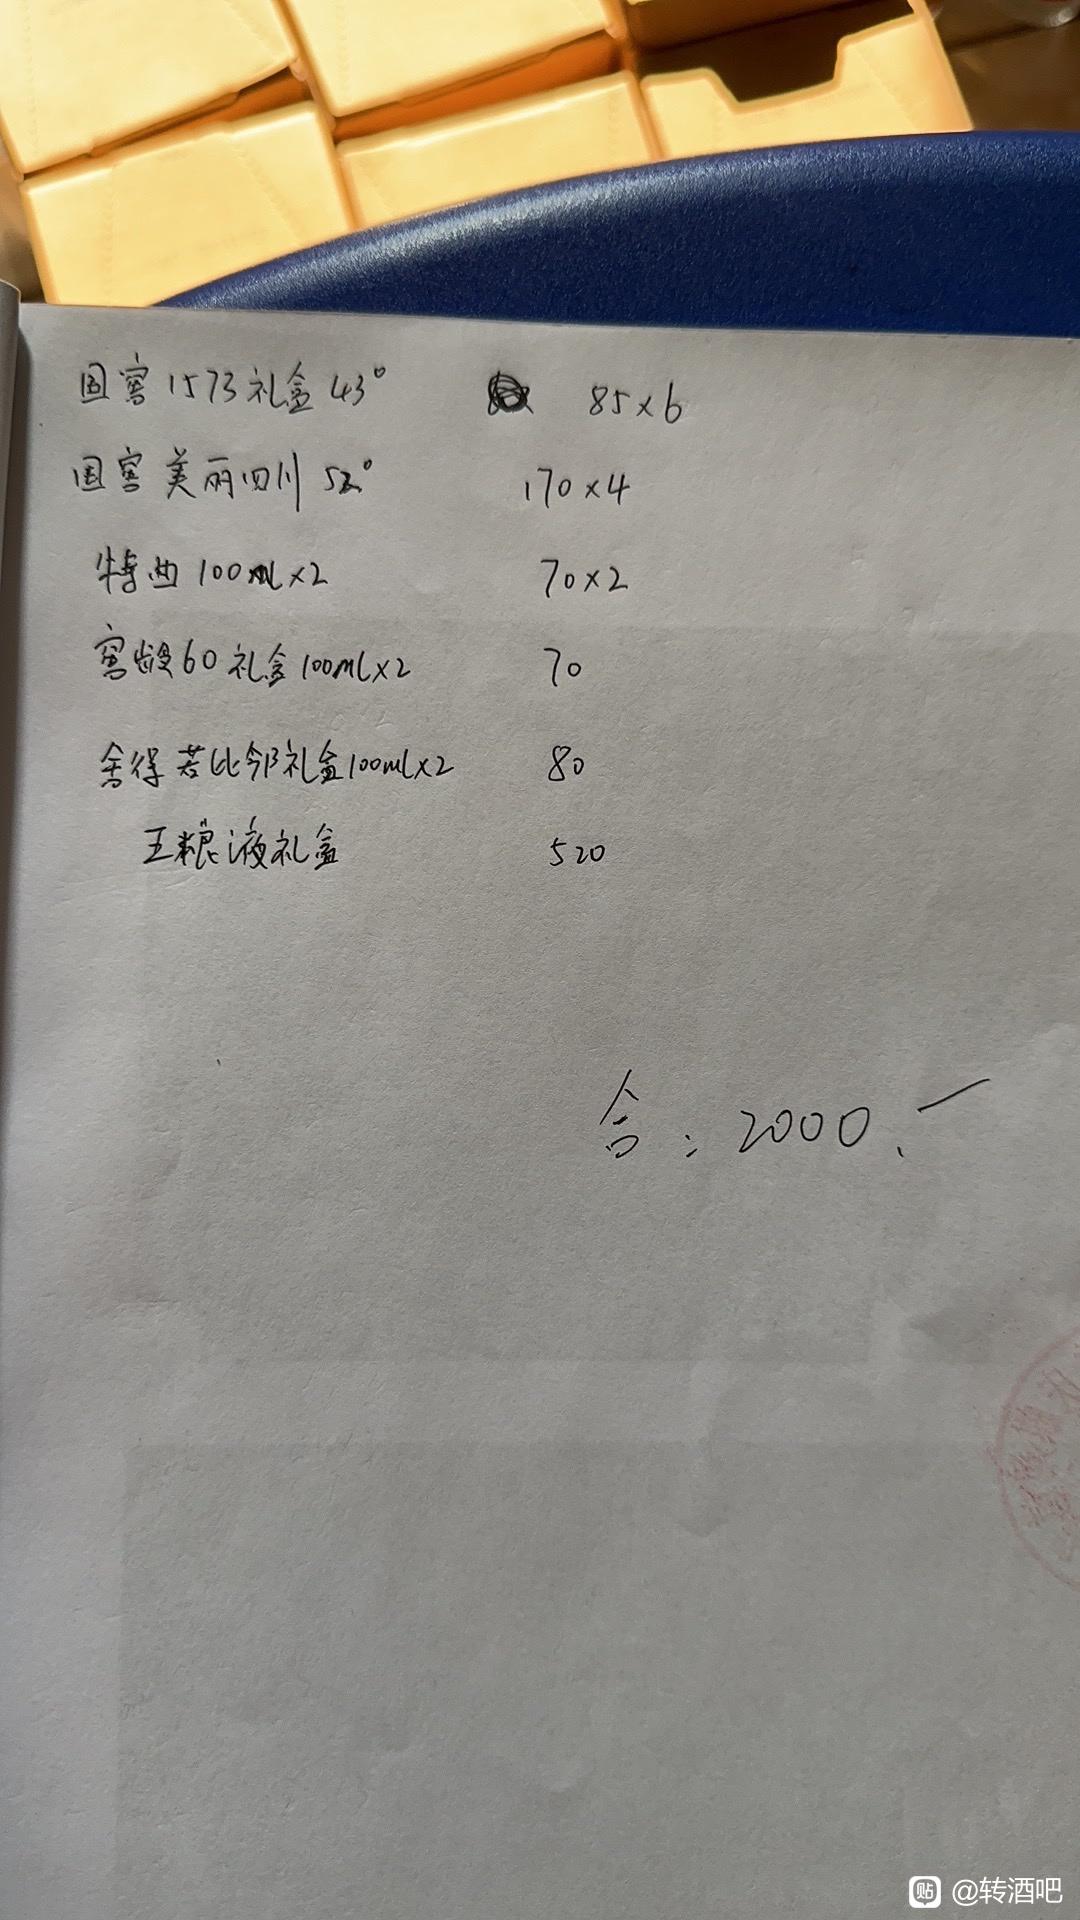 国窖1573礼盒43° 85×6
国窖美丽四川52° 170×4
特曲100ml×2 70×2
窖龄60礼盒100ml×2 70
舍得若比邻礼盒100ml×2 80
五粮液礼盒 520
合:2000.
贴 @转酒吧